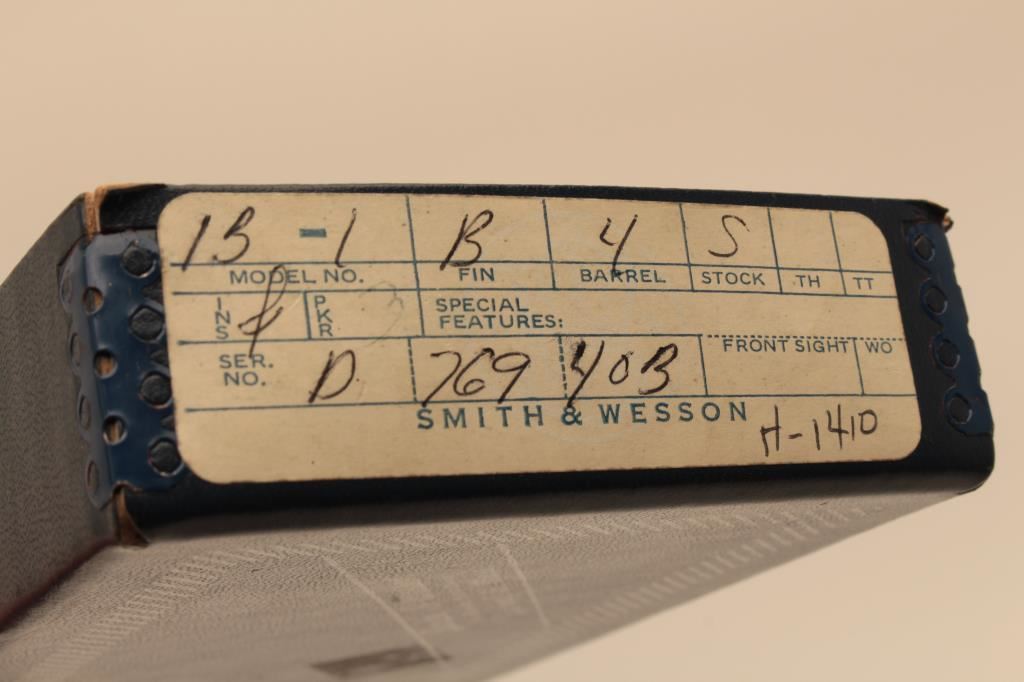 13 -1 B 4 S
MODEL NO. FIN BARREL STOCK TH TT
INS PKR 3 SPECIAL FEATURES:
SER. NO. D 769 403 FRONT SIGHT WO
SMITH & WESSON
H-1410